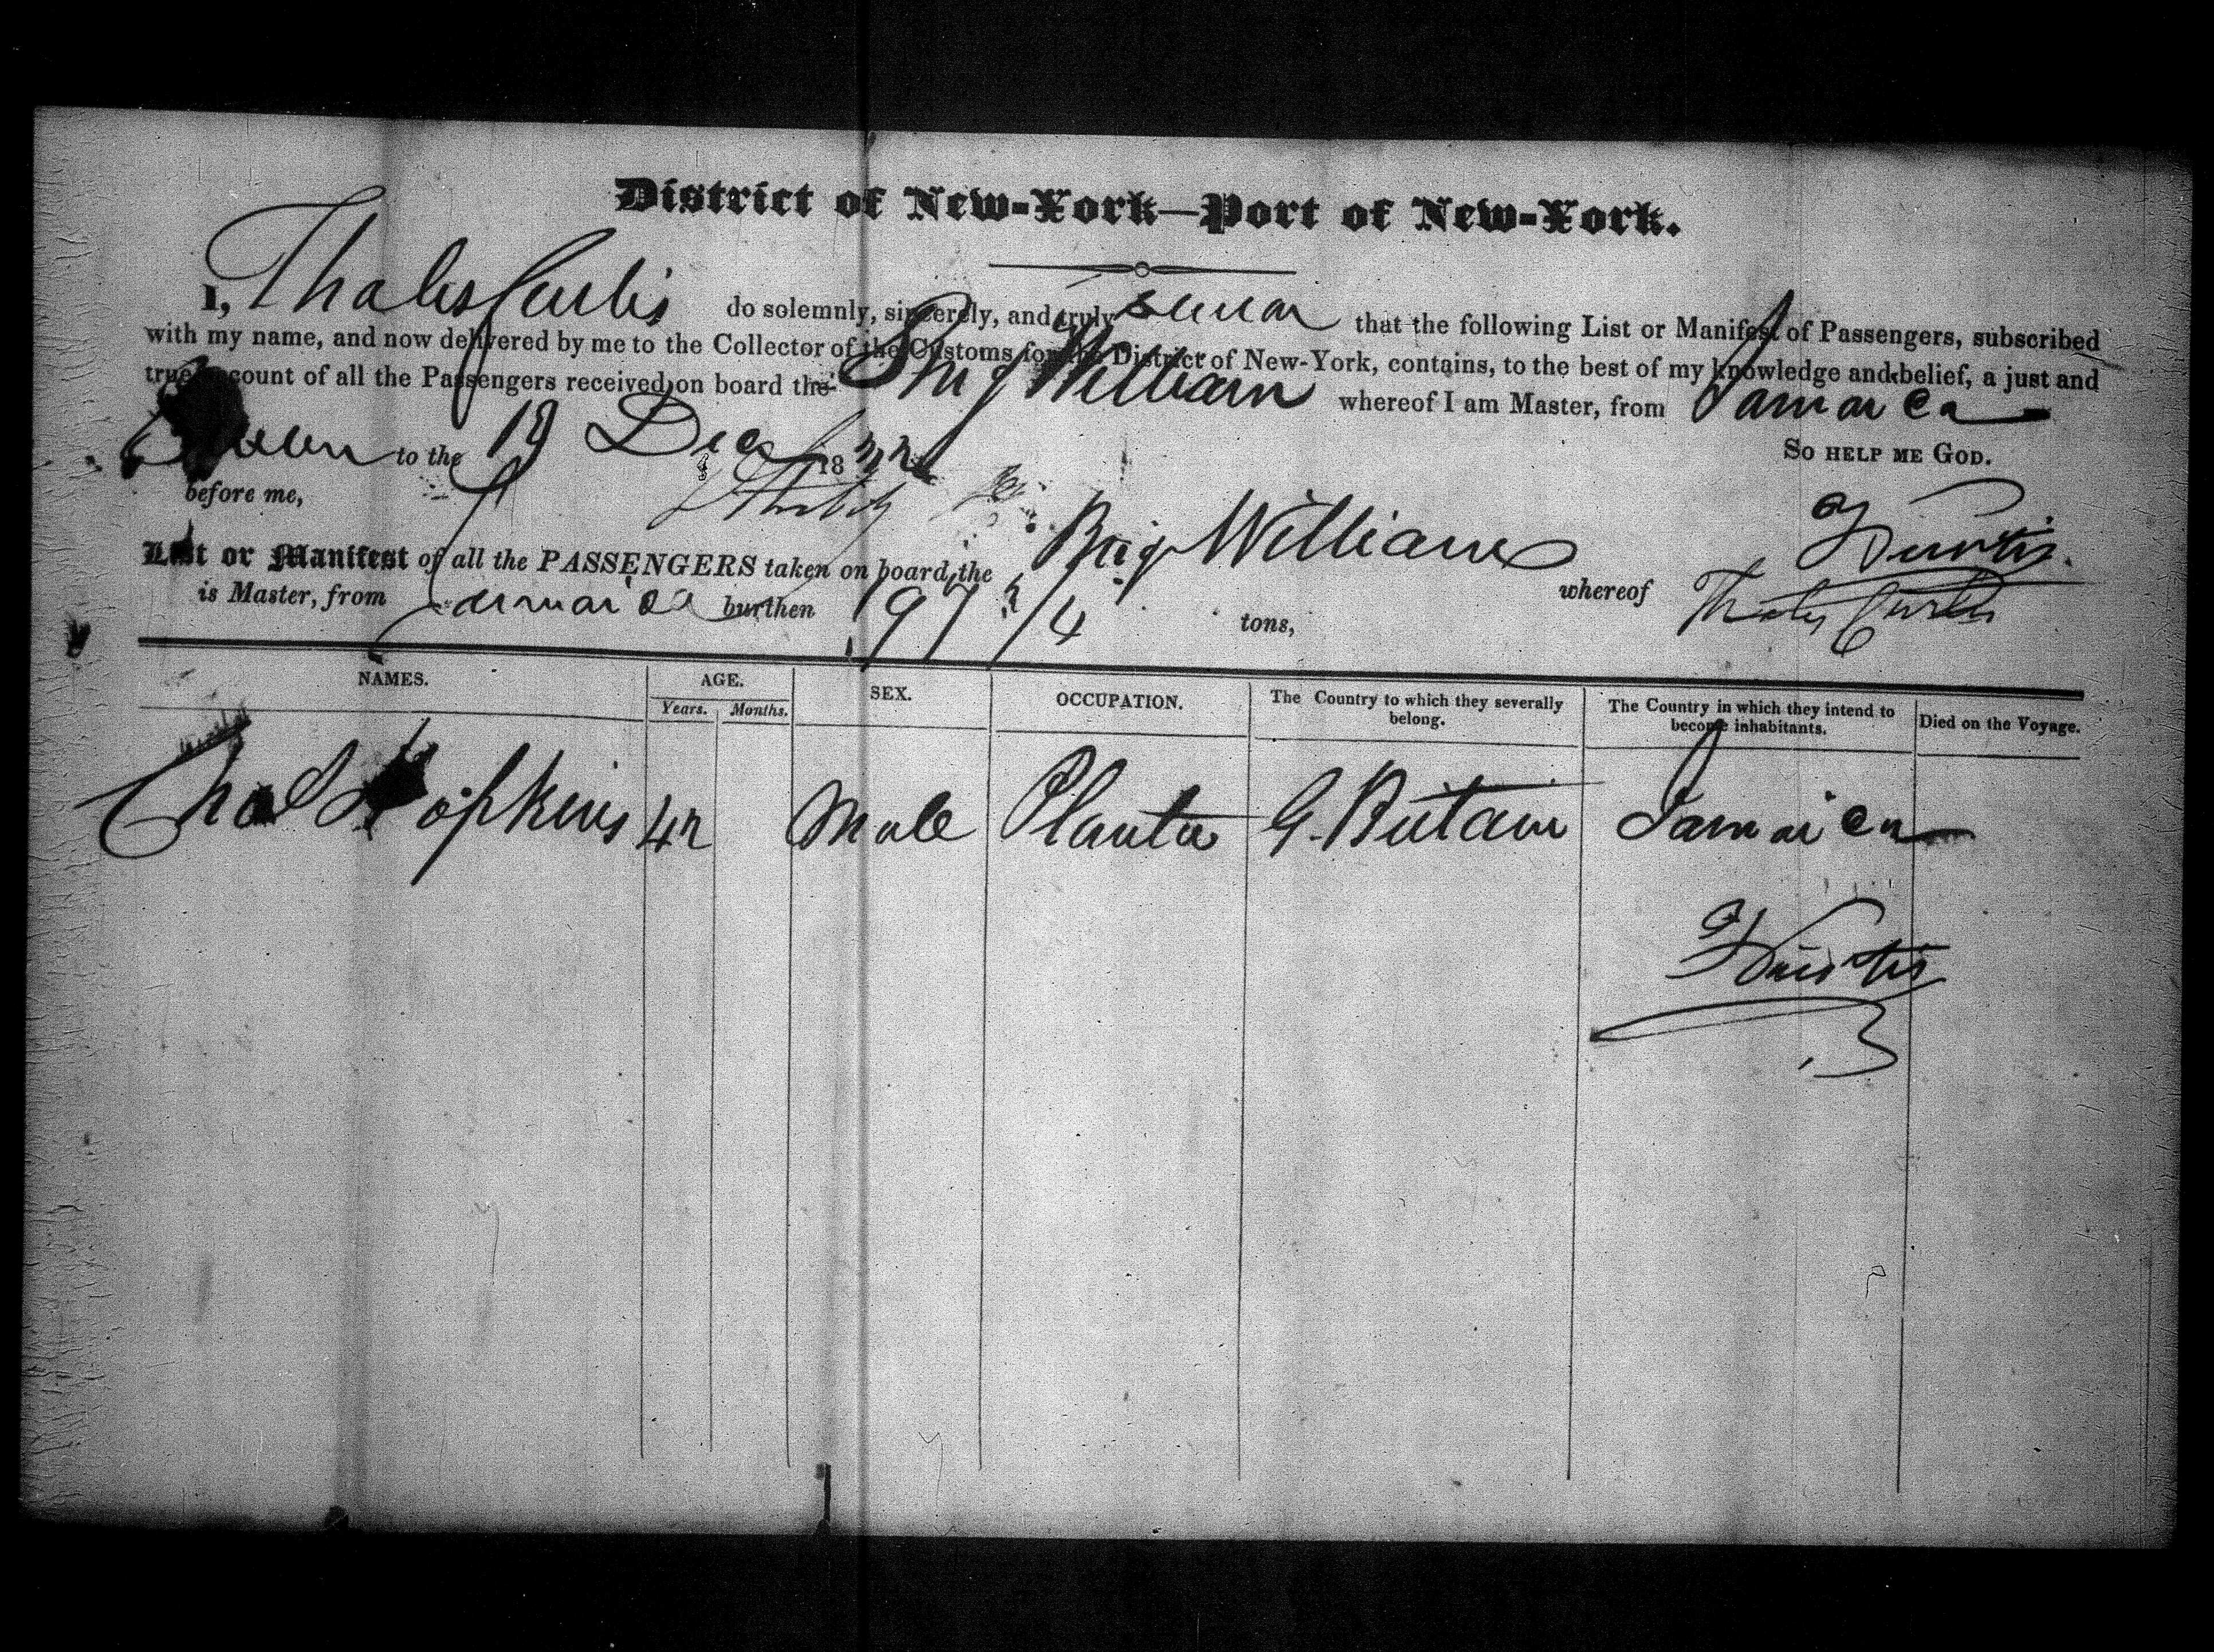 District of New-York—Port of New-York.
I, Thales Curtis do solemnly, sincerely, and truly swear that the following List or Manifest of Passengers, subscribed
with my name, and now delivered by me to the Collector of the Customs for the District of New-York, contains, to the best of my knowledge and belief, a just and
true account of all the Passengers received on board the Brig William whereof I am Master, from Jamaica
Sworn to the 18 Dec 1832 So help me God.
before me, T Curtis
List or Manifest of all the PASSENGERS taken on board the Brig William whereof Thales Curtis
is Master, from Jamaica burthen 197 tons,
NAMES. AGE. SEX. OCCUPATION. The Country to which they severally belong. The Country in which they intend to become inhabitants. Died on the Voyage.
Years. Months.
Chas Hopkins 42 Male Planter G. Britain Jamaica
T Curtis